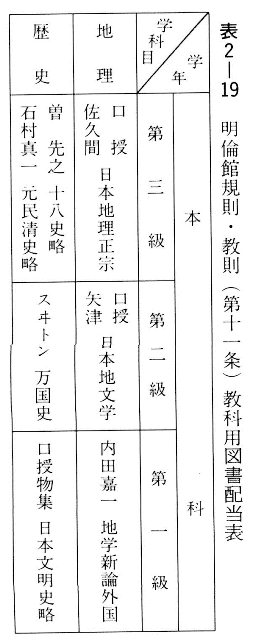 表2―19 明倫館規則・教則(第十一条)教科用図書配当表
学年
学科目
本科
第三級
第二級
第一級
地理
口授
佐久間 日本地理正宗
口授
矢津 日本地文学
内田嘉一 地学新論外国
歴史
曽先之 十八史略
石村真一 元民清史略
スヰトン 万国史
口授物集 日本文明史略